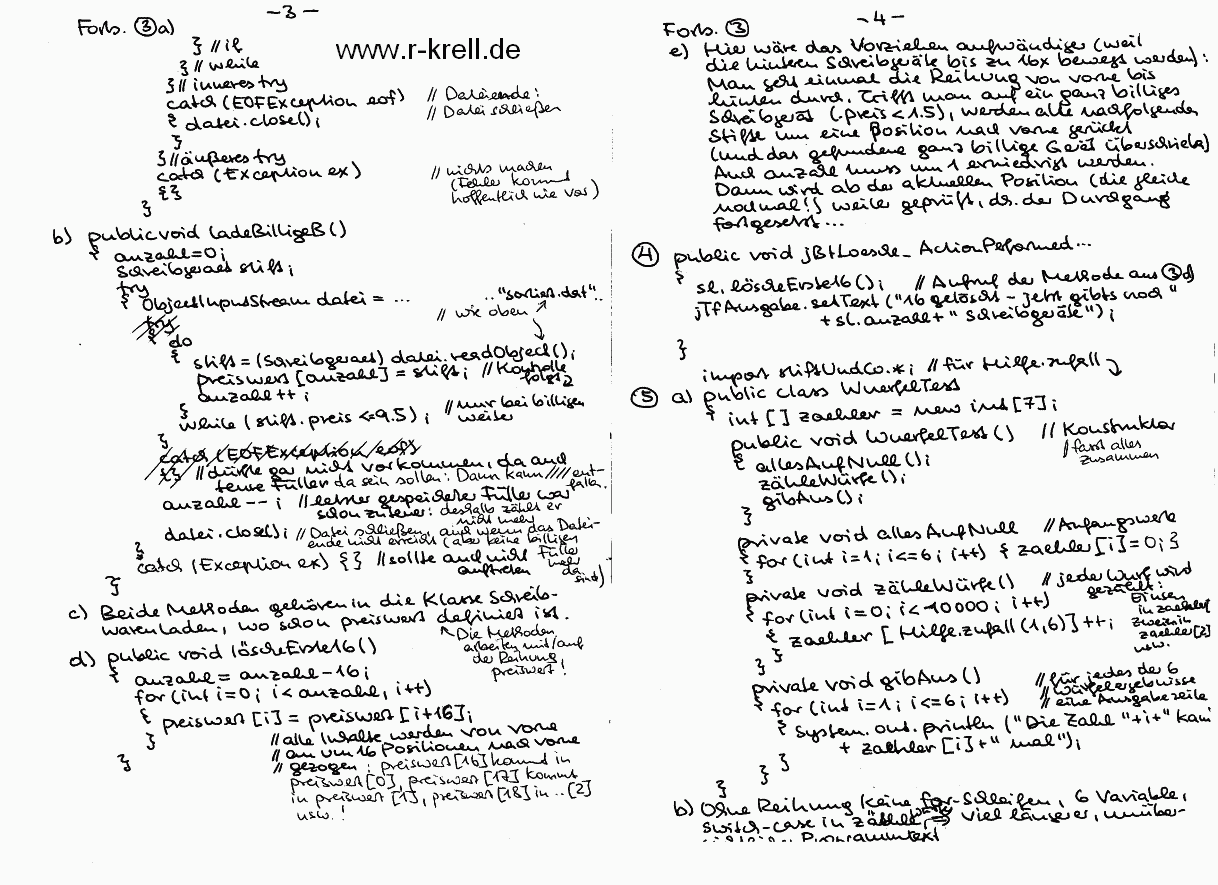 -3-
Forts. ③a)
www.r-krell.de
} // if
} // while
} // inneres try
catch (EOFException eof) // Dateiende:
{ datei.close(); // Datei schließen
}
} // äußeres try
catch (Exception ex) // nichts machen
{} (Fehler kommt
hoffentlich nie vor)
}
b) public void ladeBilligeB()
{ anzahl=0;
Schreibgeraet stift;
try
{ ObjectInputStream datei = ... .."sortiert.dat"..
// wie oben
try
{ do
{ stift = (Schreibgeraet) datei.readObject();
preiswert [anzahl] = stift; // Kontrolle
folgt
anzahl ++;
}
while (stift.preis <=9.5); // nur bei billigen
weiter
}
catch (EOFException eof)
{} // dürfte gar nicht vorkommen, da auch
teure Füller da sein sollen: Dann kann //// ent-
fallen.
anzahl --; // letzter gespeicherter Füller war
schon zu teuer: deshalb zählt er
nicht mehr
datei.close(); // Datei schließen, auch wenn das Datei-
ende nicht erreicht (aber keine billigen
Füller
mehr
da
sind)
}
catch (Exception ex) {} // sollte auch nicht
auftreten
}
c) Beide Methoden gehören in die Klasse Schreib-
warenladen, wo schon preiswert definiert ist.
Die Methoden
arbeiten mit/auf
der Reihung
preiswert!
d) public void löscheErste16()
{ anzahl = anzahl-16;
for (int i=0; i< anzahl, i++)
{ preiswert [i] = preiswert [i+16];
} // alle Inhalte werden von vorne
// an um 16 Positionen nach vorne
} // gezogen: preiswert [16] kommt in
preiswert [0], preiswert [17] kommt
in preiswert [1], preiswert [18] in ..[2]
usw.!
-4-
Forts. ③
e) Hier wäre das Vorziehen aufwändiger (weil
die hinteren Schreibgeräte bis zu 16x bewegt werden):
Man geht einmal die Reihung von vorne bis
hinten durch. Trifft man auf ein ganz billiges
Schreibgerät (.preis<1.5), werden alle nachfolgenden
Stifte um eine Position nach vorne gerückt
(und das gefundene ganz billige Gerät überschrieben)
Auch anzahl muss um 1 erniedrigt werden.
Dann wird ab der aktuellen Position (die gleiche
nochmal!) weiter geprüft, d.h. der Durchgang
fortgesetzt...
④ public void jBtLoesche_ActionPerformed...
{
sl.löscheErste16(); // Aufruf der Methode aus ③d)
jTfAusgabe.setText ("16 gelöscht - jetzt gibts noch "
+ sl.anzahl+" Schreibgeräte");
}
import stiftUndCo.*; // für Hilfe.zufall
⑤ a) public class WuerfelTest
{ int [] zaehler = new int [7];
public void WuerfelTest() // Konstruktor
{ allesAufNull(); // fasst alles
zusammen
zähleWürfe();
gibAus();
}
private void allesAufNull // Anfangswerte
{ for (int i=1; i<=6; i++) { zaehler [i]=0; }
}
private void zähleWürfe() // jeder Wurf wird
gezählt:
{ for (int i=0; i<10000; i++) Einsen
in zaehler[1]
{ zaehler [Hilfe.zufall (1,6)]++; Zweien in
zaehler[2]
usw.
}
}
private void gibAus() // für jedes der 6
// Würfelergebnisse
{ for (int i=1; i<=6; i++) // eine Ausgabezeile
{ System.out.println ("Die Zahl "+i+" kam
+ zaehler [i]+" mal");
}
}
}
b) Ohne Reihung keine for-Schleifen, 6 Variable,
switch-case in zähleWürfe => viel längerer, unüber-
sichtlicher Programmtext